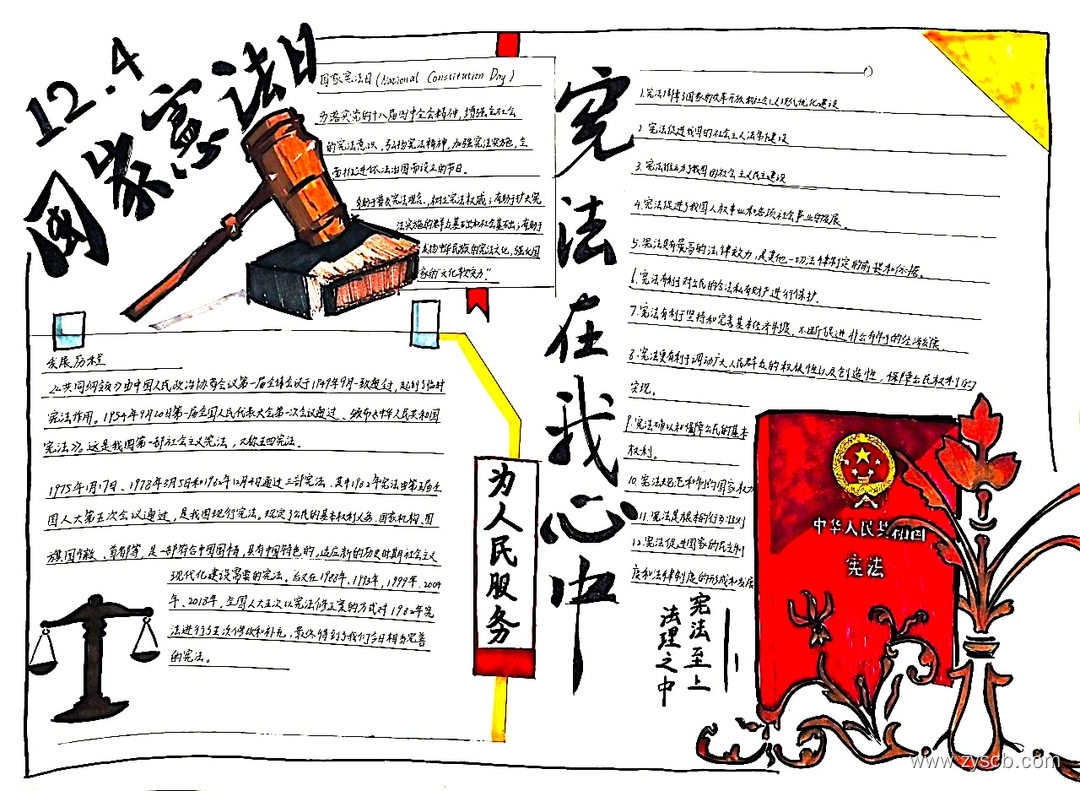 12.4
国家宪法日
国家宪法日(National Constitution Day)
为落实党的十八届四中全会精神，增强全社会
的宪法意识，弘扬宪法精神，加强宪法实施，全
面推进依法治国而设立的节日。
有助于普及宪法观念，树立宪法权威；有助于扩大宪
法实施的群众基础和社会基础；有助于
中华民族的宪法文化，强化国
家的"文化软实力"
发展历程
《共同纲领》由中国人民政治协商会议第一届全体会议于1949年9月一致通过，起到了临时
宪法作用。1954年9月20日第一届全国人民代表大会第一次会议通过、颁布《中华人民共和国
宪法》。这是我国第一部社会主义宪法，又称五四宪法。
1975年1月17日、1978年3月5日和1982年12月4日通过三部宪法，其中1982年宪法由第五届全
国人大第五次会议通过，是我国现行宪法。规定了公民的基本权利义务、国家机构、国
旗国徽、首都等，是一部符合中国国情，具有中国特色的，适应新的历史时期社会主义
现代化建设需要的宪法。后又在1988年、1993年、1999年、2004
年、2018年，全国人大五次以宪法修正案的方式对1982年宪
法进行了五次修改和补充，最终得到了我们今日相当完善
的宪法。
为人民服务
宪法在我心中
1.宪法保障了国家的改革开放和社会主义现代化建设
2.宪法促进我国的社会主义法制建设
3.宪法推动了我国的社会主义民主建设
4.宪法促进了我国人权事业和各项社会事业的发展。
5.宪法具有最高的法律效力，是其他一切法律制定的前提和依据。
6.宪法有利于对公民的合法私有财产进行保护。
7.宪法有利于坚持和完善基本经济制度，不断促进非公有制的经济发展。
8.宪法更有利于调动广大人民群众的积极性以及创造性，保障公民权利的
实现。
9.宪法确认和保障公民的基本
权利。
10.宪法规范和制约国家权力
11.宪法是根本的行为准则
12.宪法促进国家的民主制
度和法律制度的形成和发展
宪法至上
法理之中
中华人民共和国
宪法
www.zyscb.com